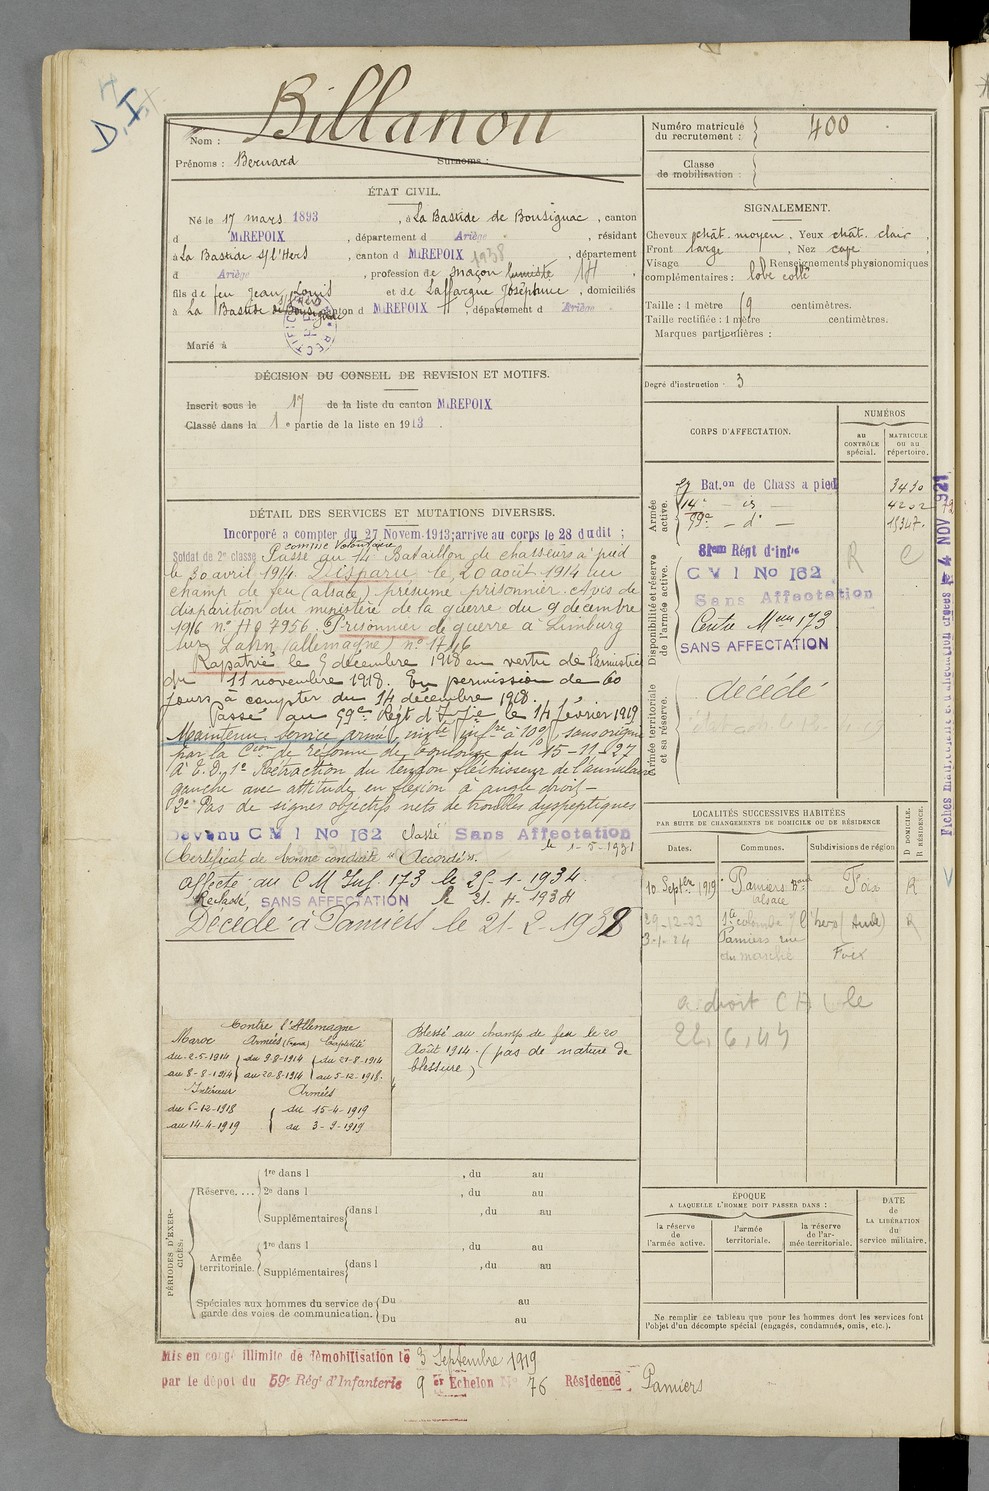 D.I.
Billanou
Nom :
Prénoms : Bernard Surnoms :
Numéro matricule du recrutement : 400
Classe de mobilisation :
ÉTAT CIVIL.
Né le 17 mars 1893, à La Bastide de Bousignac, canton
d MIREPOIX, département d Ariège, résidant
à La Bastide s/l'Hers, canton d MIREPOIX 1938, département
d Ariège, profession de maçon fumiste
fils de feu Jean Louis et de Laffargue Joséphine, domiciliés
à La Bastide de Bousignac canton d MIREPOIX, département d Ariège
Marié à
SIGNALEMENT.
Cheveux chât. moyen. Yeux chât. clair,
Front large, Nez cave
Visage Renseignements physionomiques
complémentaires : lobe collé
Taille : 1 mètre 69 centimètres.
Taille rectifiée : 1 mètre centimètres.
Marques particulières :
Degré d'instruction : 3
DÉCISION DU CONSEIL DE REVISION ET MOTIFS.
Inscrit sous le 17 de la liste du canton MIREPOIX
Classé dans la 1e partie de la liste en 1913.
CORPS D'AFFECTATION.
NUMÉROS
au CONTRÔLE spécial.
MATRICULE ou au répertoire.
Armée active.
27 Bat.on de Chass à pied 3430
14e — id — 4202
59e — d° — 15347.
Disponibilité et réserve de l'armée active.
81em Régt d'infie R C
C M I No 162
Sans Affectation
Centre Meur 173
SANS AFFECTATION
Armée territoriale et sa réserve.
décédé
DÉTAIL DES SERVICES ET MUTATIONS DIVERSES.
Incorporé à compter du 27 Novem. 1913; arrive au corps le 28 dudit ;
comme Volontaire
Soldat de 2e classe Passé au 14e Bataillon de chasseurs à pied
le 30 avril 1914. Disparu le 20 août 1914 au
champ de feu (alsace) présumé prisonnier. Avis de
disparition du ministère de la guerre du 9 décembre
1916 n° HQ 7956. Prisonnier de guerre à Limburg
sur Lahn (allemagne) n° 1746
Rapatrié le 5 décembre 1918 en vertu de l'armistice
du 11 novembre 1918. En permission de 60
jours à compter du 14 décembre 1918.
Passé au 59e Régt d'Infie le 14 février 1919
Maintenu service armé, inv.te inf.re à 10% sans origine
par la Cion de réforme de Toulouse du 15-11-27
à E. D. 1° Rétraction du tendon fléchisseur de l'annulaire
gauche avec attitude en flexion à angle droit -
2° Pas de signes objectifs nets de troubles dyspeptiques
Devenu C M I No 162 Classé Sans Affectation
le 1-5-1931
Certificat de bonne conduite "Accordé".
affecté au C M Inf. 173 le 25-1-1934.
Reclassé, SANS AFFECTATION le 21. 4. 1934
Décédé à Pamiers le 21-2-1938
LOCALITÉS SUCCESSIVES HABITÉES
PAR SUITE DE CHANGEMENTS DE DOMICILE OU DE RÉSIDENCE
Dates. Communes. Subdivisions de région
D DOMICILE. R RÉSIDENCE.
10 Septbre 1919 Pamiers Bard alsace Foix R
29-12-23 Ste colombe s/ l'hers (Aude) R
3-1-24 Pamiers rue du marché Foix
a droit C A le
22, 6, 45
Contre l'Allemagne
Maroc Armées (France) Captivité
du 2-5-1914 du 9-8-1914 du 21-8-1914
au 8-8-1914 au 20-8-1914 au 5-12-1918.
Intérieur Armées
du 6-12-1918 du 15-4-1919
au 14-4-1919 au 3-9-1919
Blessé au champ de feu le 20
Août 1914. (pas de nature de
blessure)
PÉRIODES D'EXERCICES.
Réserve.... 1re dans l , du au
2e dans l , du au
Supplémentaires dans l , du au
Armée territoriale. 1re dans l , du au
Supplémentaires dans l , du au
Spéciales aux hommes du service de garde des voies de communication. Du au
Du au
ÉPOQUE
A LAQUELLE L'HOMME DOIT PASSER DANS :
la réserve de l'armée active.
l'armée territoriale.
la réserve de l'armée territoriale.
DATE de LA LIBÉRATION du service militaire.
Ne remplir ce tableau que pour les hommes dont les services font
l'objet d'un décompte spécial (engagés, condamnés, omis, etc.).
Mis en congé illimité de démobilisation le 3 Septembre 1919
par le dépôt du 59e Régt d'Infanterie 9 er Echelon No 76 Résidence Pamiers
4 NOV 1921